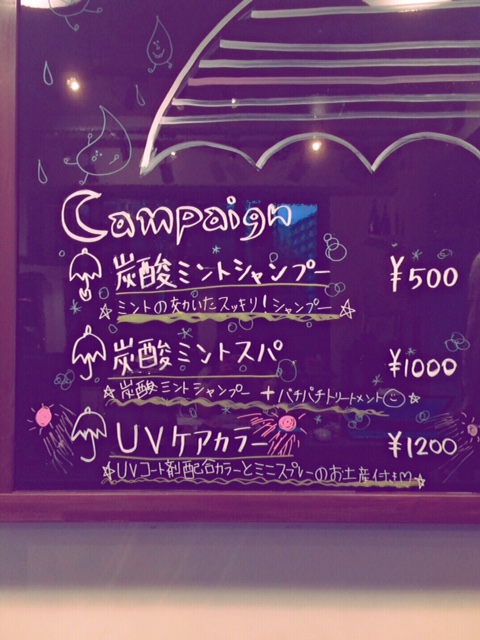 Campaign
炭酸ミントシャンプー ¥500
☆ミントの効いたスッキリ!シャンプー☆
炭酸ミントスパ ¥1000
☆炭酸ミントシャンプー+パチパチトリートメント☺☆
UVケアカラー ¥1200
☆UVコート剤配合カラーとミニスプレーのお土産付き♡☆